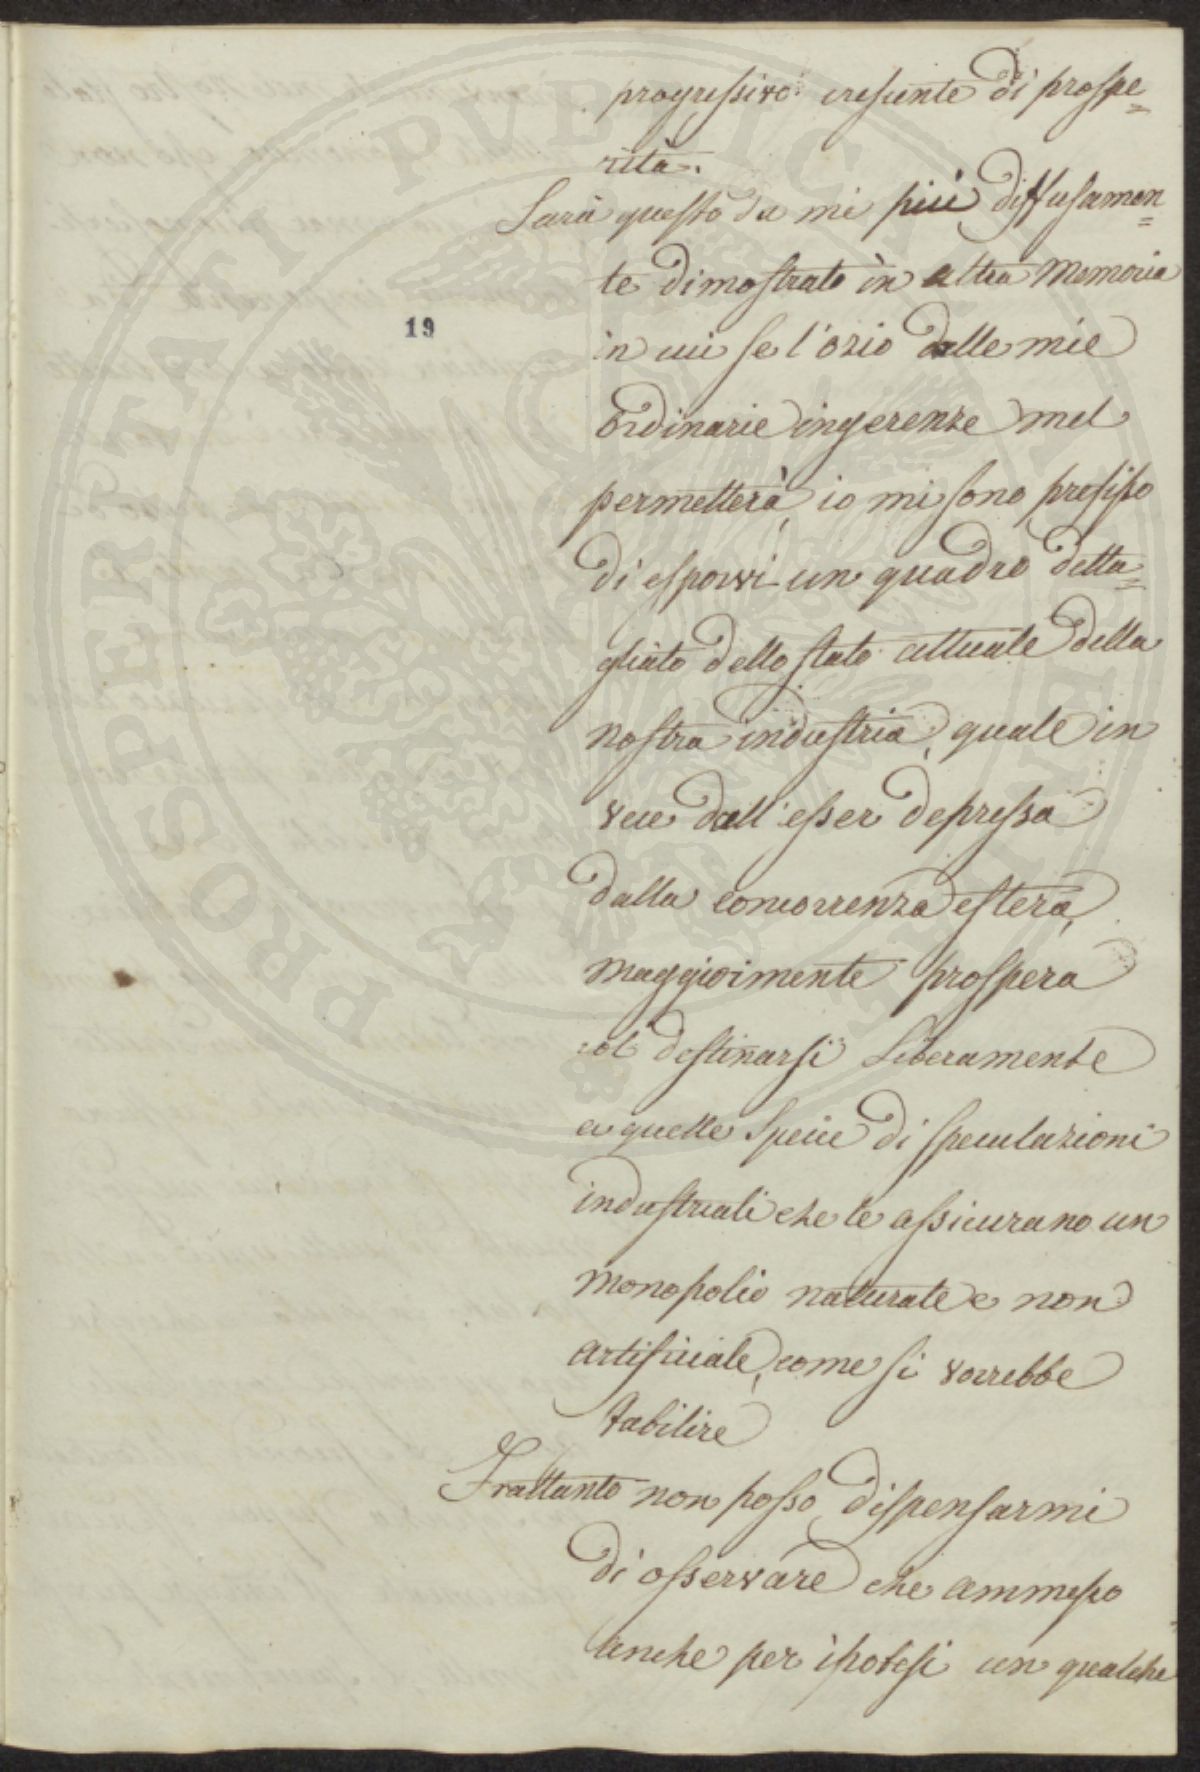 progressivo crescente di prospe=
rità.
Sarà questo da mi più diffusamen=
te dimostrato in altra Memoria
19
in cui se l'ozio dalle mie
ordinarie ingerenze mel
permetterà, io mi sono prefisso
di esporvi un quadro detta=
gliato dello stato attuale della
nostra industria, quale in
vece dall'esser depressa
dalla concorrenza estera,
maggiormente prospera
col destinarsi liberamente
a quelle specie di speculazioni
industriali che le assicurano un
monopolio naturale e non
artificiale, come si vorrebbe
stabilire
Frattanto non posso dispensarmi
di osservare che ammesso
anche per ipotesi un qualche
PROSPERITATI PVBLICAE